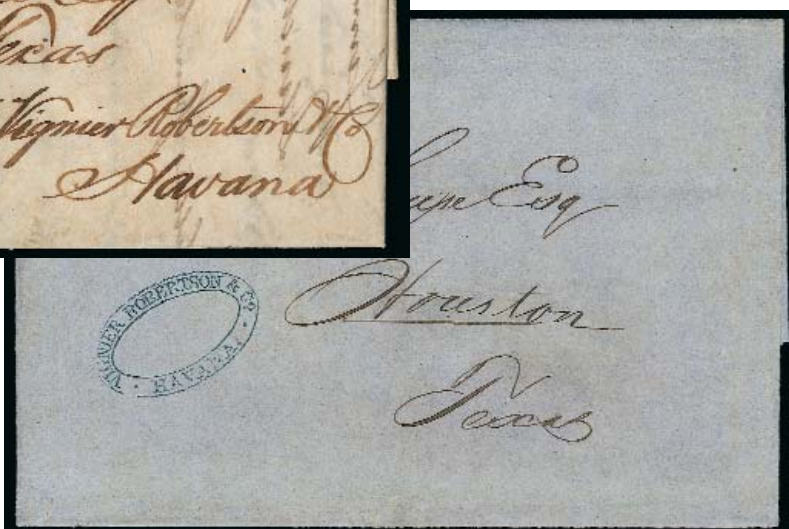 Texas
Vignier Robertson & Co
Havana
Esq
Houston
Texas
VIGNIER ROBERTSON & CO.
HAVANA